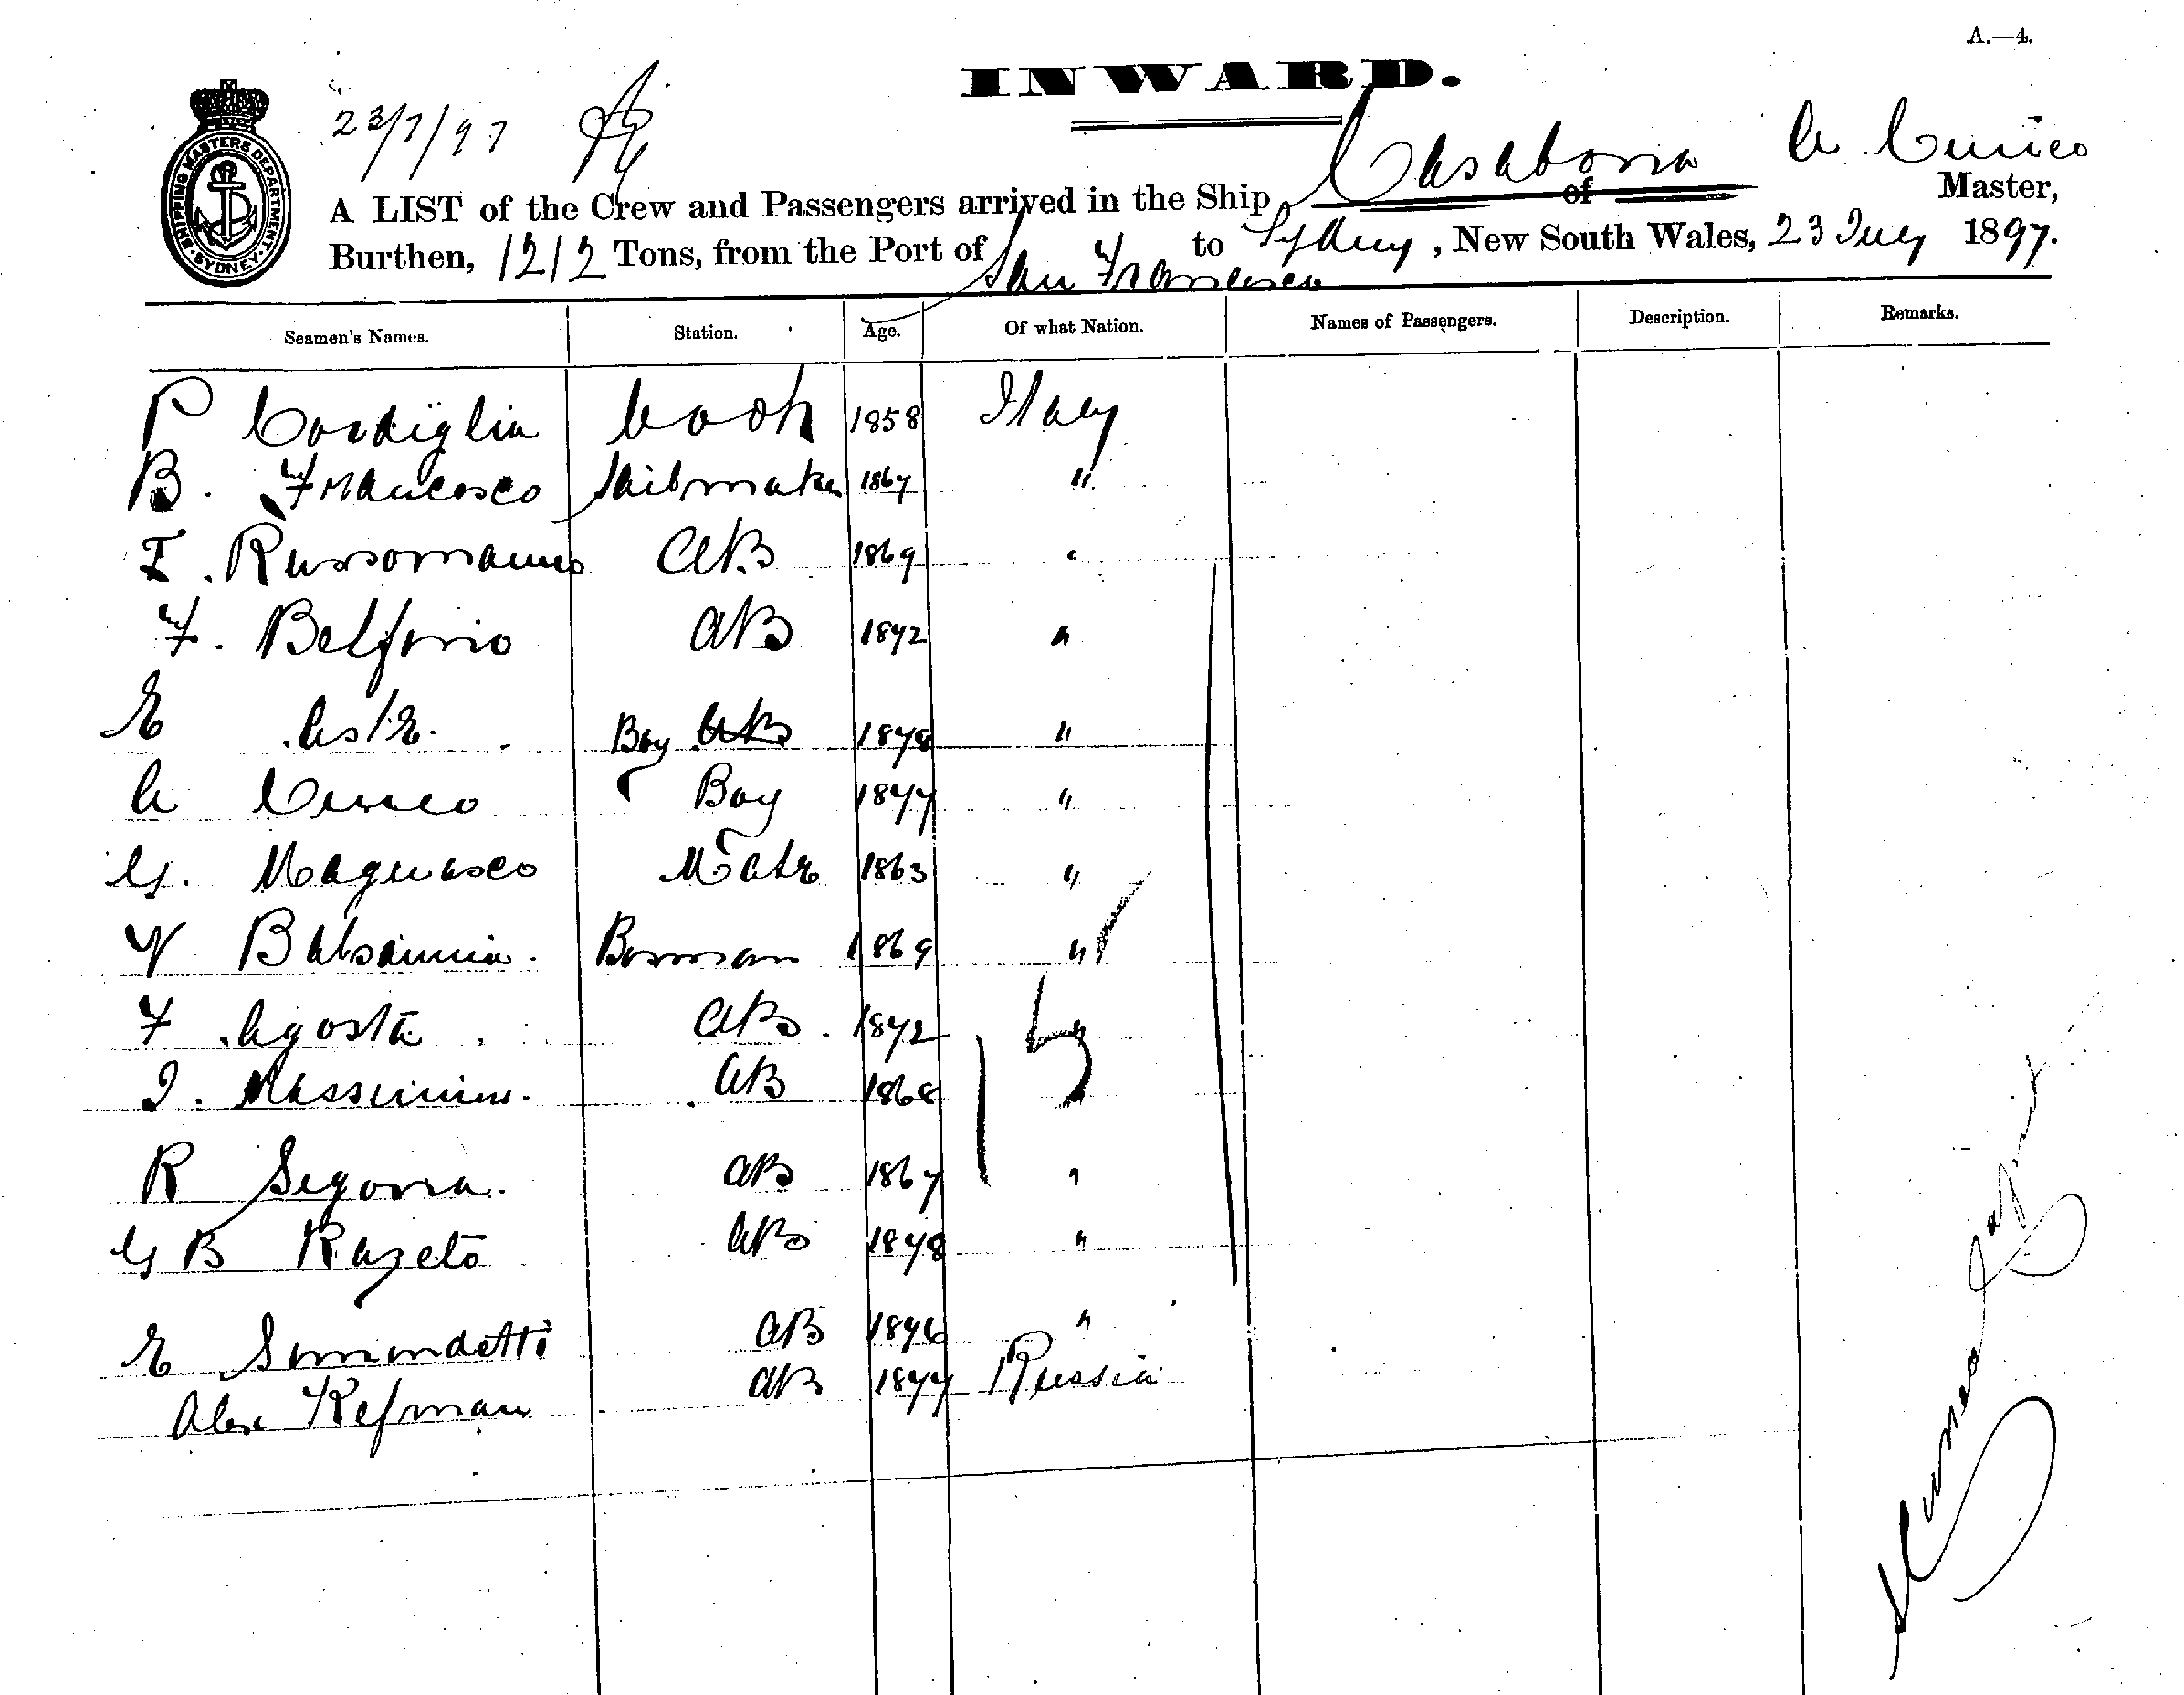 A.—4.
INWARD.
23/7/97
SHIPPING MASTERS DEPARTMENT · SYDNEY ·
A LIST of the Crew and Passengers arrived in the Ship Casabona of A Cuneo Master,
Burthen, 1212 Tons, from the Port of San Francisco to Sydney, New South Wales, 23 July 1897.
Seamen's Names. Station. Age. Of what Nation. Names of Passengers. Description. Remarks.
P Cordiglia Cook 1858 Italy
B. Francesco Sailmaker 1867 "
F. Russomanno AB 1869 "
F. Belforio AB 1872 "
E Aste. Boy AB 1878 "
A Cuneo Boy 1877 "
G. Maquasco Mate 1863 "
V Balsamia. Bosman 1869 "
F Agosta AB. 1872 "
I. Massimino. AB 1868 "
15
R Segovia. AB 1867 "
G B Razeto AB 1878 "
E Simondetti AB 1876 "
Alex Kefman AB 1877 Russia